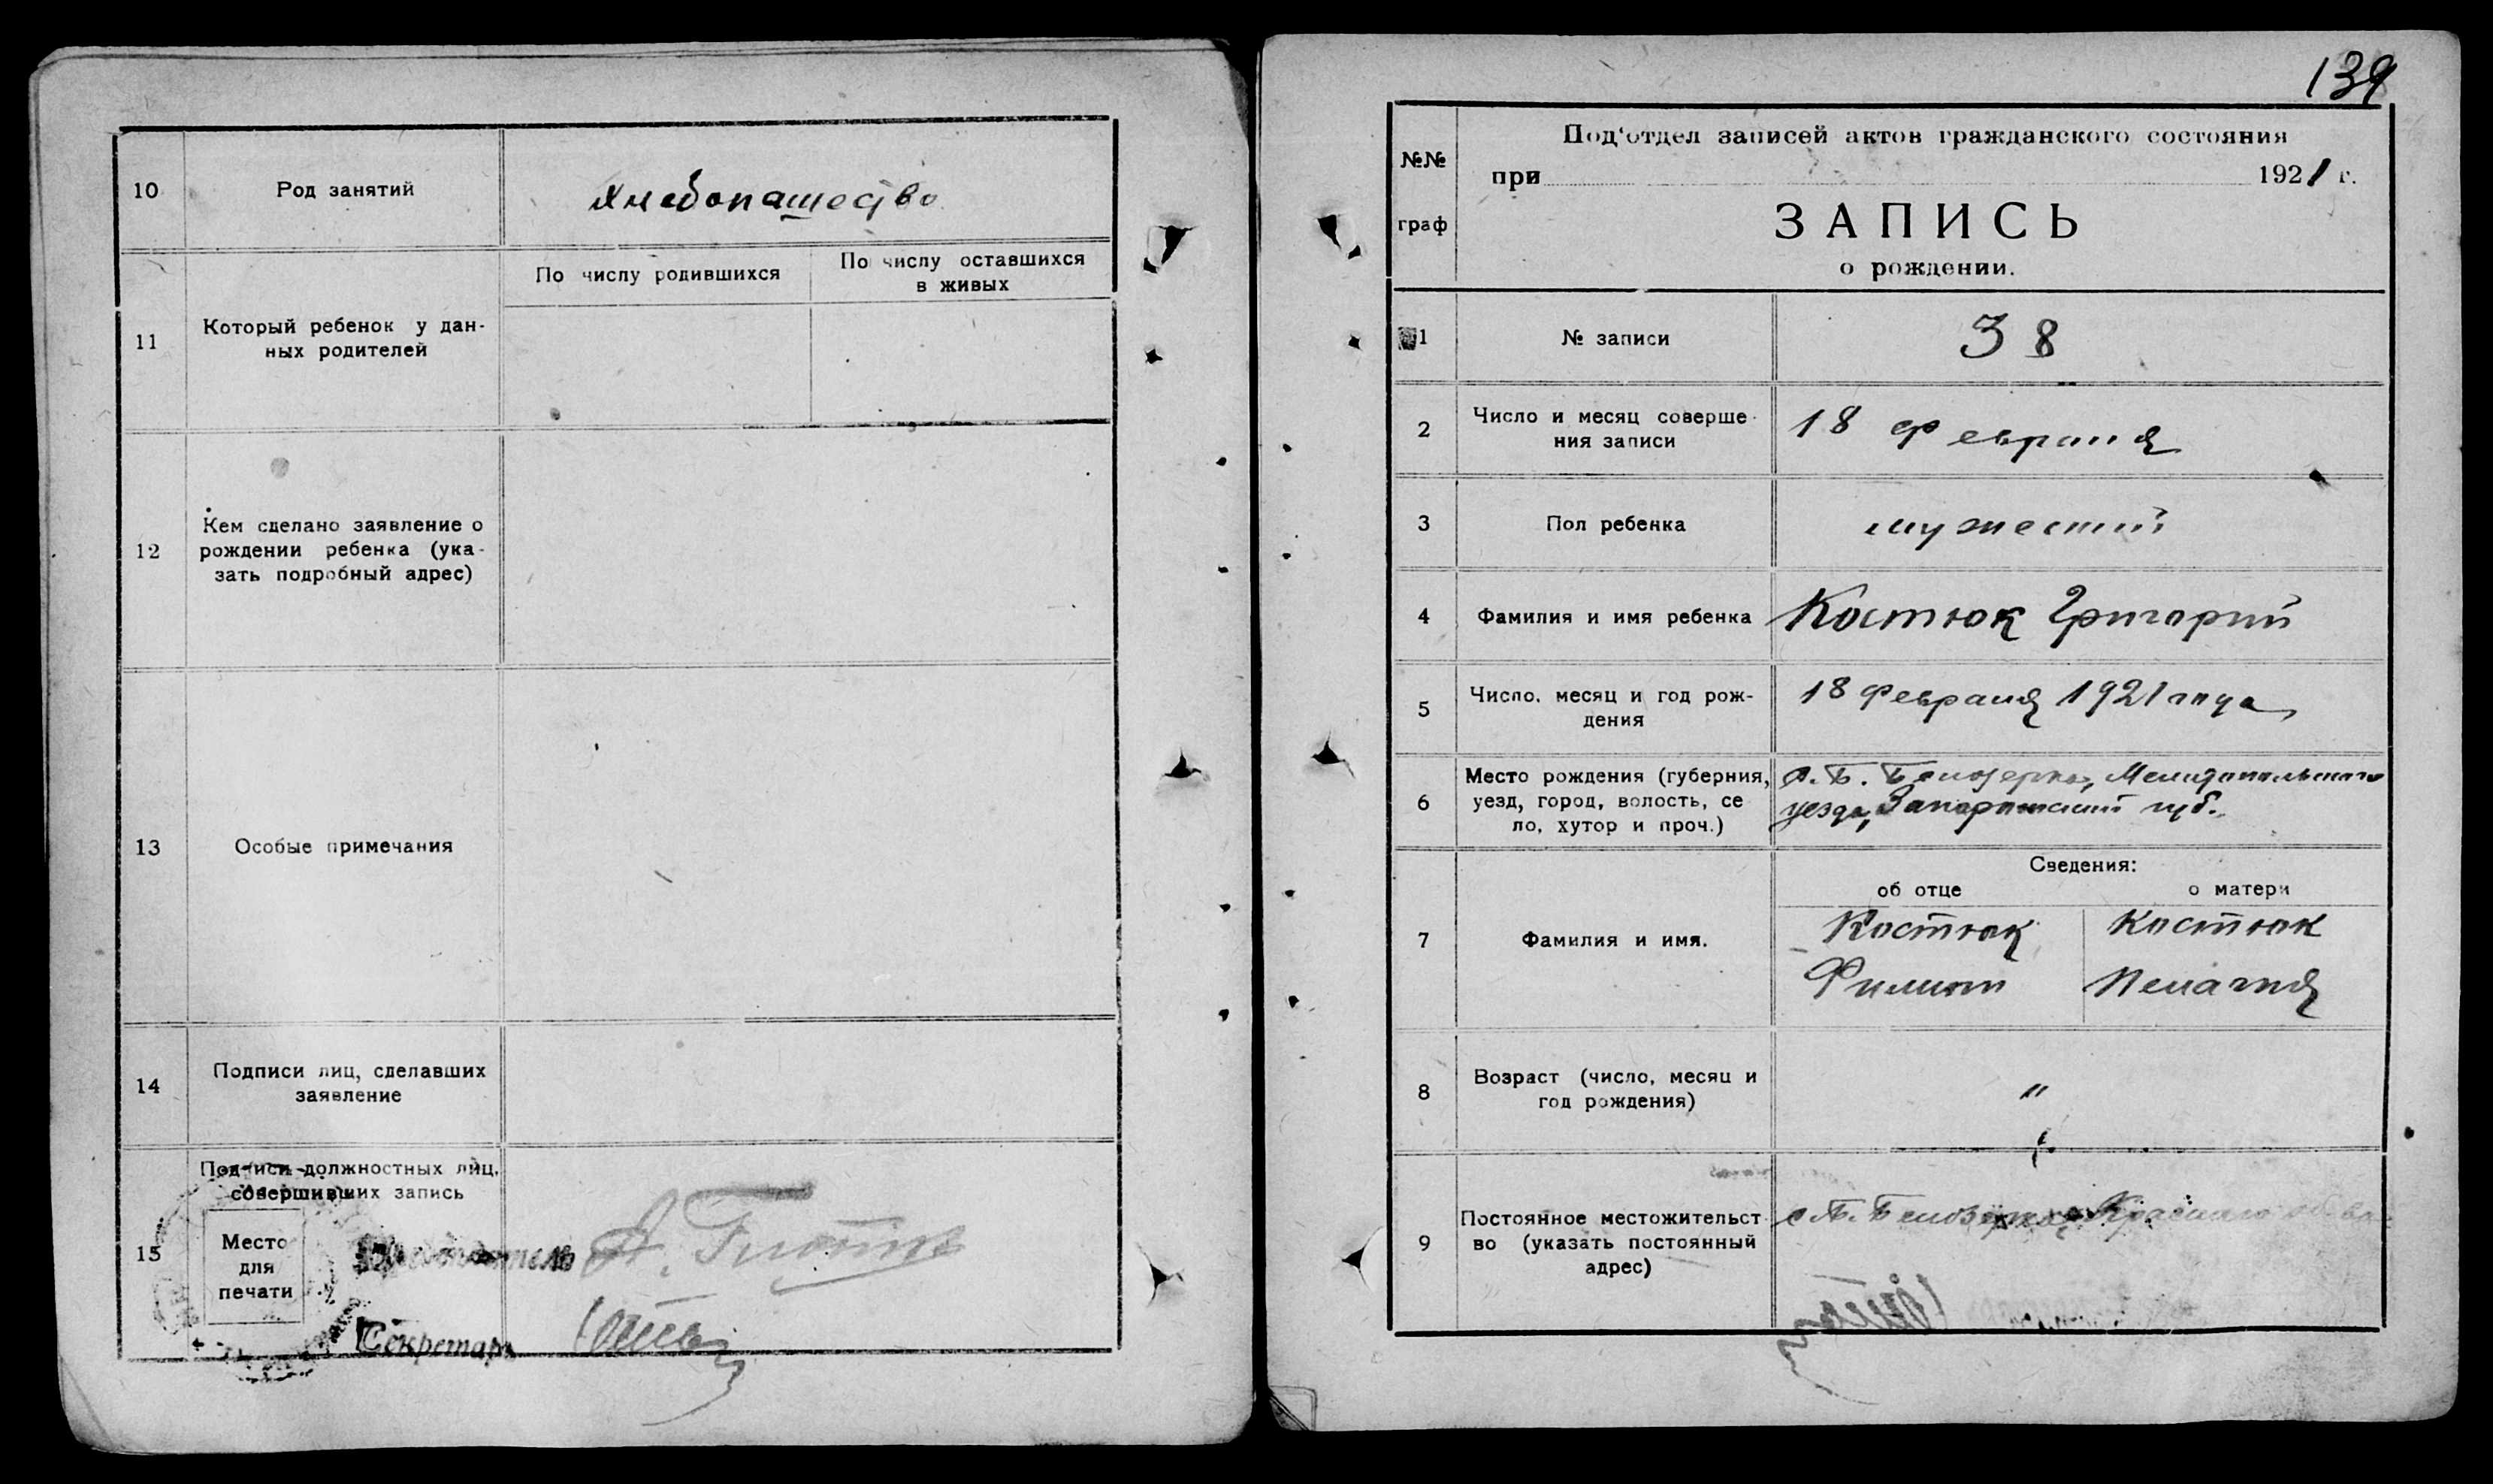 10
Род занятий
хлебопашество
11
Который ребенок у дан-
ных родителей
По числу родившихся
По числу оставшихся
в живых
12
Кем сделано заявление о
рождении ребенка (ука-
зать подробный адрес)
13
Особые примечания
14
Подписи лиц, сделавших
заявление
15
Подписи должностных лиц,
совершивших запись
Место
для
печати
Секретарь
139
№№
граф
Под'отдел записей актов гражданского состояния
при 1921 г.
ЗАПИСЬ
о рождении.
1
№ записи
38
2
Число и месяц соверше-
ния записи
18 февраля
3
Пол ребенка
мужеский
4
Фамилия и имя ребенка
Костюк Григорий
5
Число, месяц и год рож-
дения
18 февраля 1921 года
6
Место рождения (губерния,
уезд, город, волость, се
ло, хутор и проч.)
с. Б. Белозерка, Мелитопольского
уезда, Запорожский губ.
Сведения:
об отце
о матери
7
Фамилия и имя.
Костюк
Филипп
Костюк
Пелагия
8
Возраст (число, месяц и
год рождения)
"
9
Постоянное местожительст-
во (указать постоянный
адрес)
с Б. Белозерка